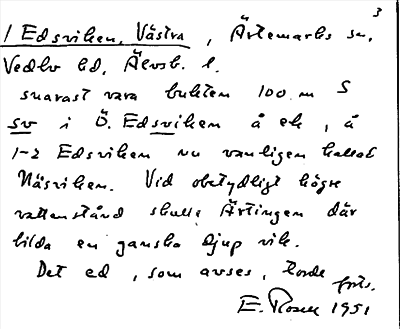 3
1 Edsviken, Västra, Ärtemarks sn,
Vedbo hd, Älvsb. l.
snarast vara bukten 100 m S
sv i Ö. Edsviken å ek, å
1-2 Edsviken nu vanligen kallad
Näsviken. Vid obetydligt högre
vattenstånd skulle Ärtingen där
bilda en ganska djup vik.
Det ed, som avses, torde
forts.
E. Rosell 1951